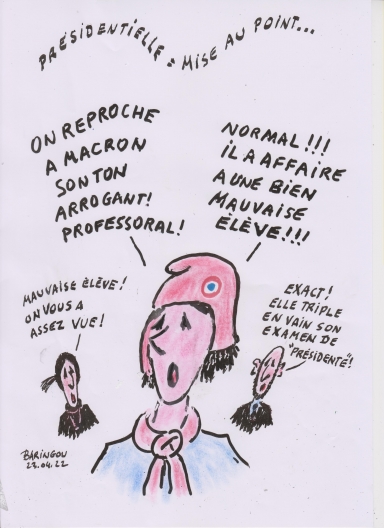 PRÉSIDENTIELLE : MISE AU POINT...
ON REPROCHE
A MACRON
SON TON
ARROGANT!
PROFESSORAL!
NORMAL!!!
IL A AFFAIRE
A UNE BIEN
MAUVAISE
ÉLÈVE!!!
MAUVAISE ÉLÈVE!
ON VOUS A
ASSEZ VUE!
EXACT!
ELLE TRIPLE
EN VAIN SON
EXAMEN DE
"PRÉSIDENTE"!
BARINGOU
22.04.22